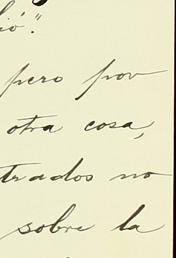 ió".
pero por
otra cosa,
trados no
sobre la